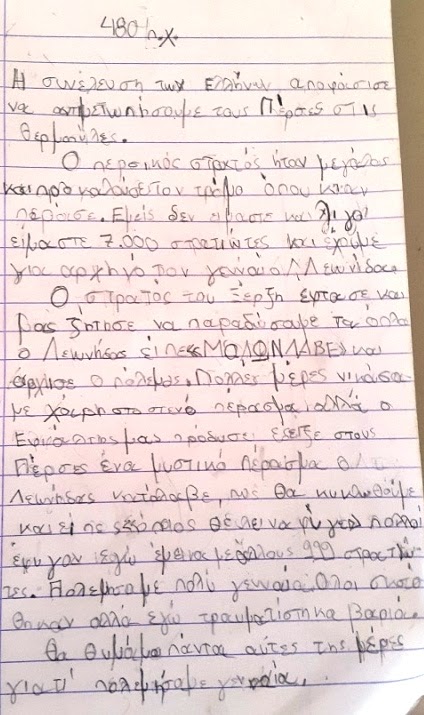 480 π.χ.
Η συνέλευση των Ελλήνων αποφάσισε
να αντιμετωπήσουμε τους Πέρσες στις
Θερμοπύλες.
Ο περσικός στρατός ήταν μεγάλος
και προκαλούσε τον τρόμο όπου κι αν
πέρασε. Εμείς δεν είμαστε και λίγοι
είμαστε 7.000 στρατιώτες και έχουμε
για αρχηγό τον γενναίο Λεωνίδα.
Ο στρατός του Ξέρξη έφτασε και
μας ζήτησε να παραδώσουμε τα όπλα
ο Λεωνήδας είπε «ΜΟΛΩΝ ΛΑΒΕ» και
άρχισε ο πόλεμος. Πολλές μέρες νικούσα
με χάρη στο στενό πέρασμα αλλά ο
Εφιάλτης μας πρόδωσε, έδειξε στους
Πέρσες ένα μυστικό πέρασμα. Ο
Λεωνήδας κατάλαβε, πως θα κυκλωθούμε
και είπε σε όποιος θέλει να φύγει πολλοί
έφυγαν εγώ έμεινα με άλλους 999 στρατιώ
τες. Πολεμήσαμε πολύ γενναία. Όλοι σκοτώ
θηκαν αλλά εγώ τραυματίστηκα βαριά.
Θα θυμάμαι πάντα αύτες της μέρες
γιατί πολεμήσαμε γενναία.